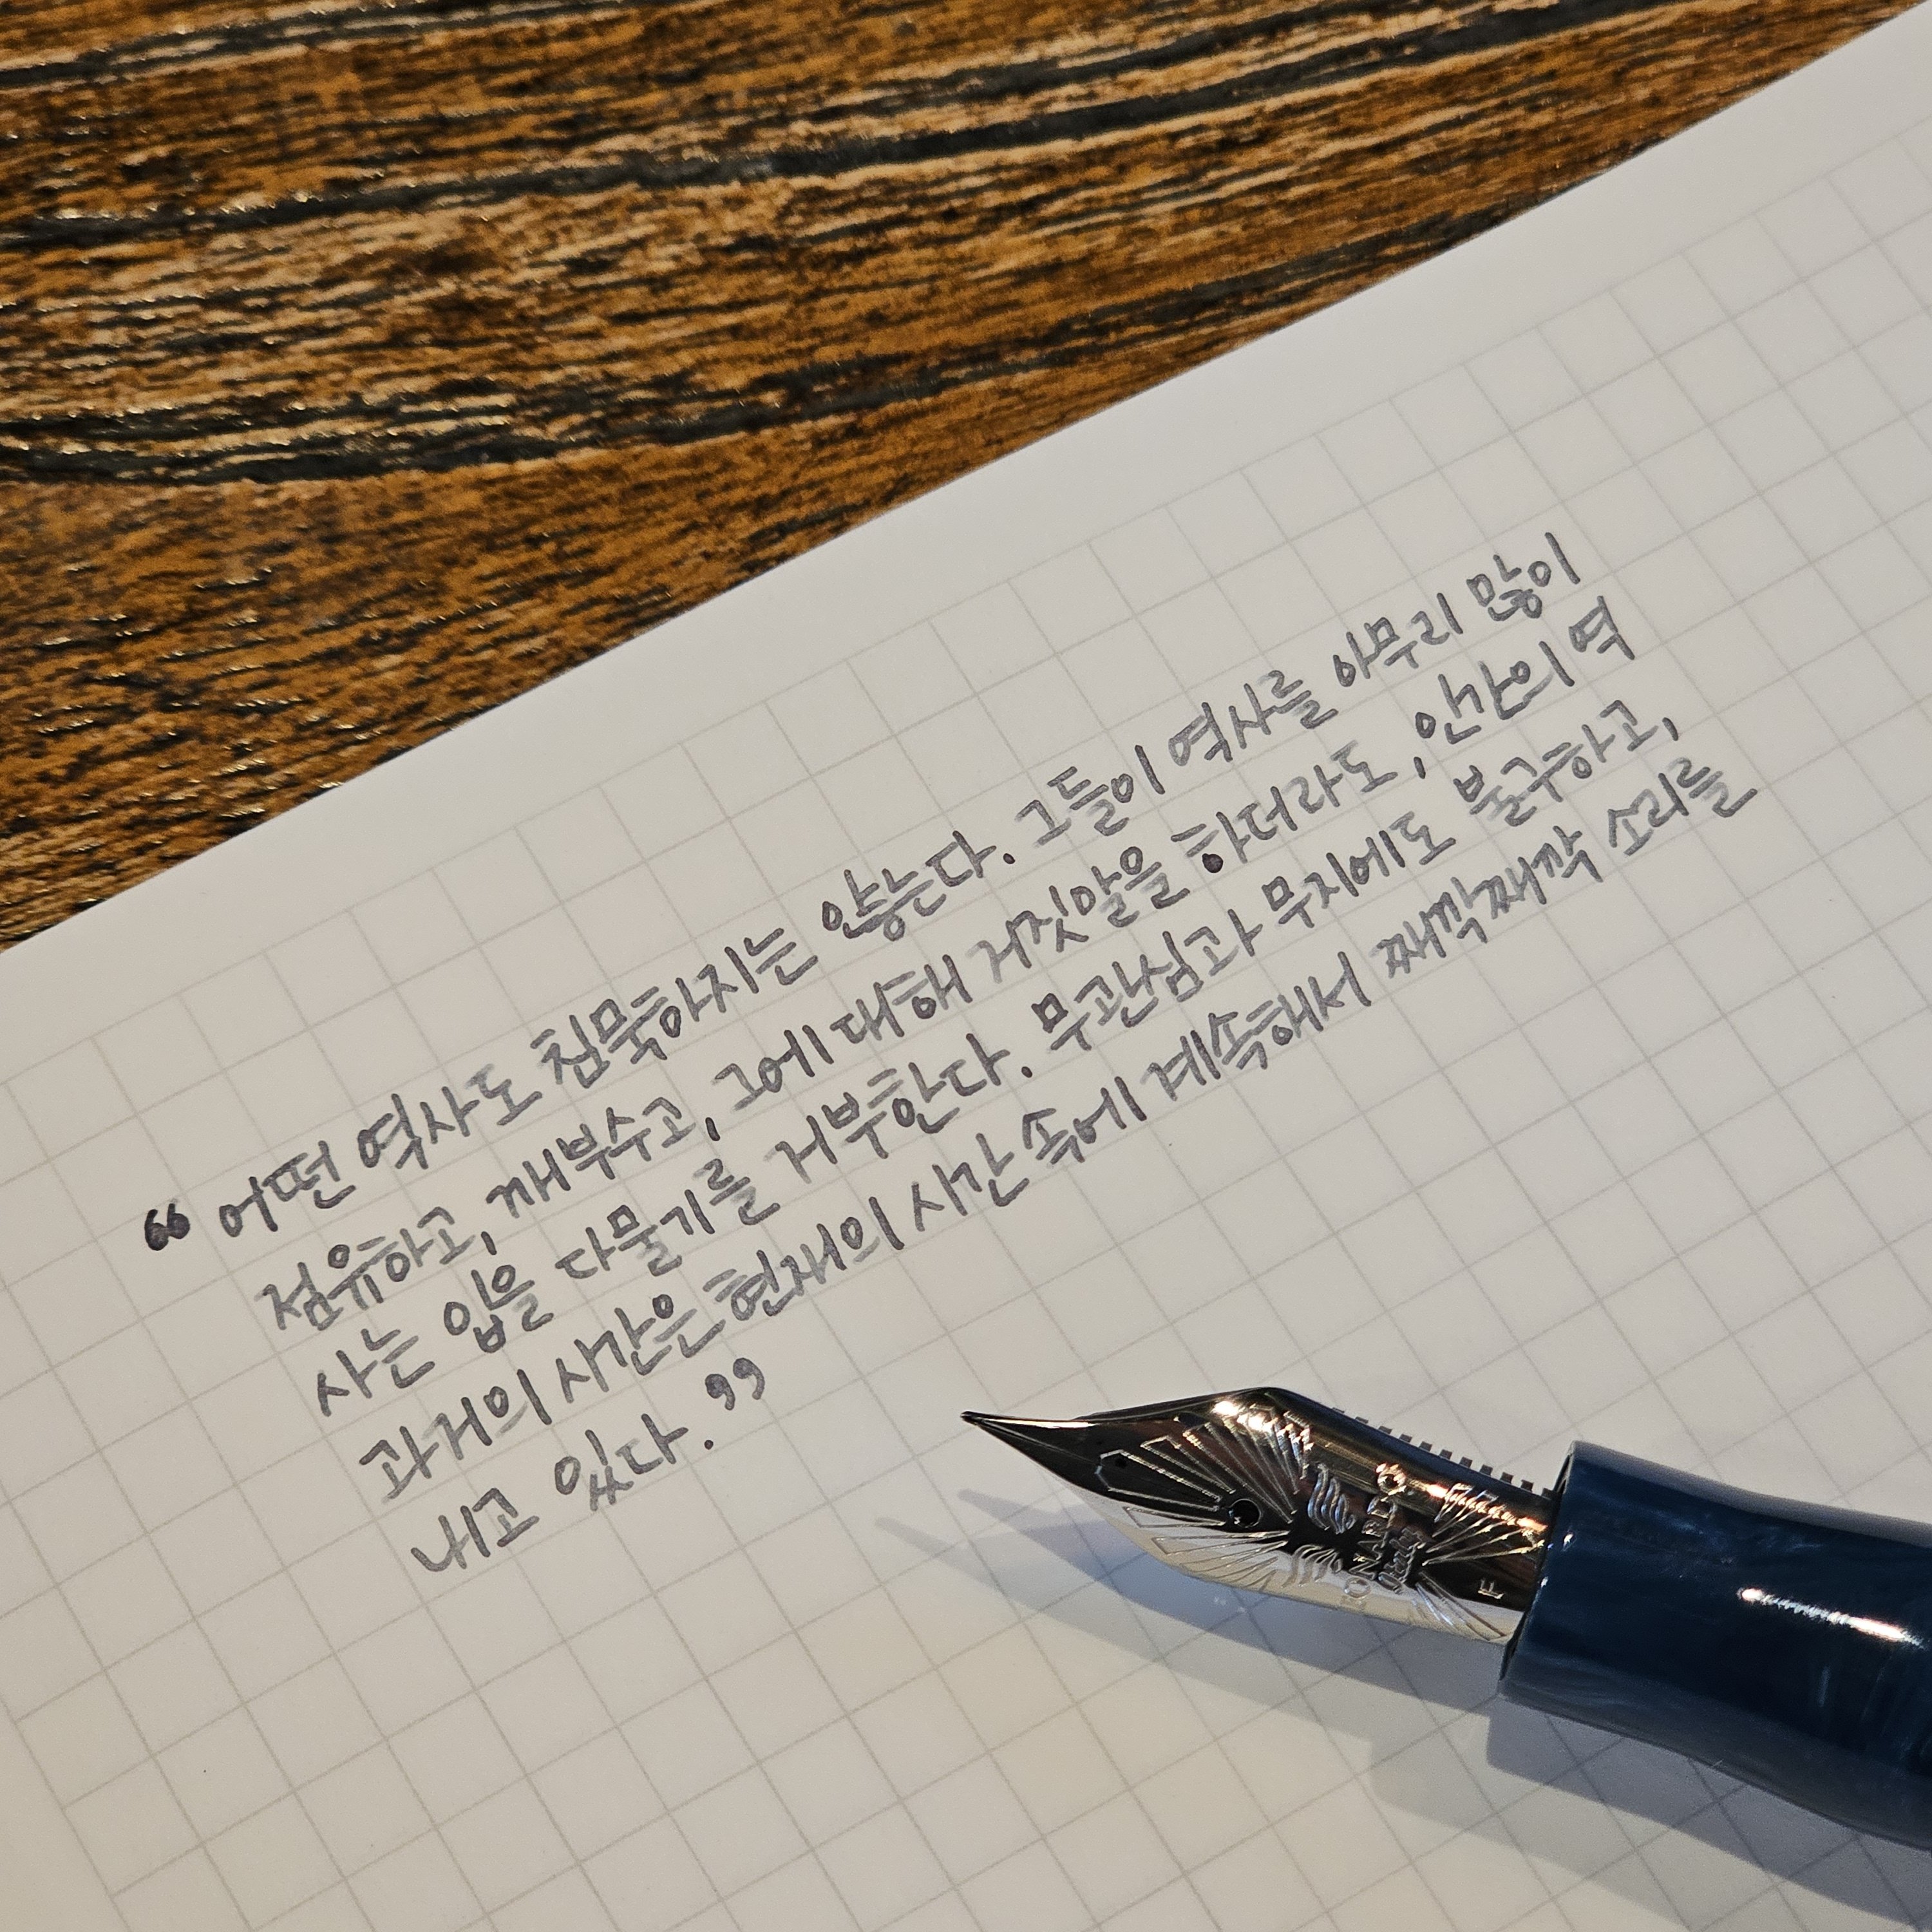 “어떤 역사도 침묵하지는 않는다. 그들이 역사를 아무리 많이
점유하고, 깨부수고, 그에 대해 거짓말을 하더라도, 인간의 역
사는 입을 다물기를 거부한다. 무관심과 무지에도 불구하고,
과거의 시간은 현재의 시간 속에 계속해서 째깍째깍 소리를
내고 있다.”
F